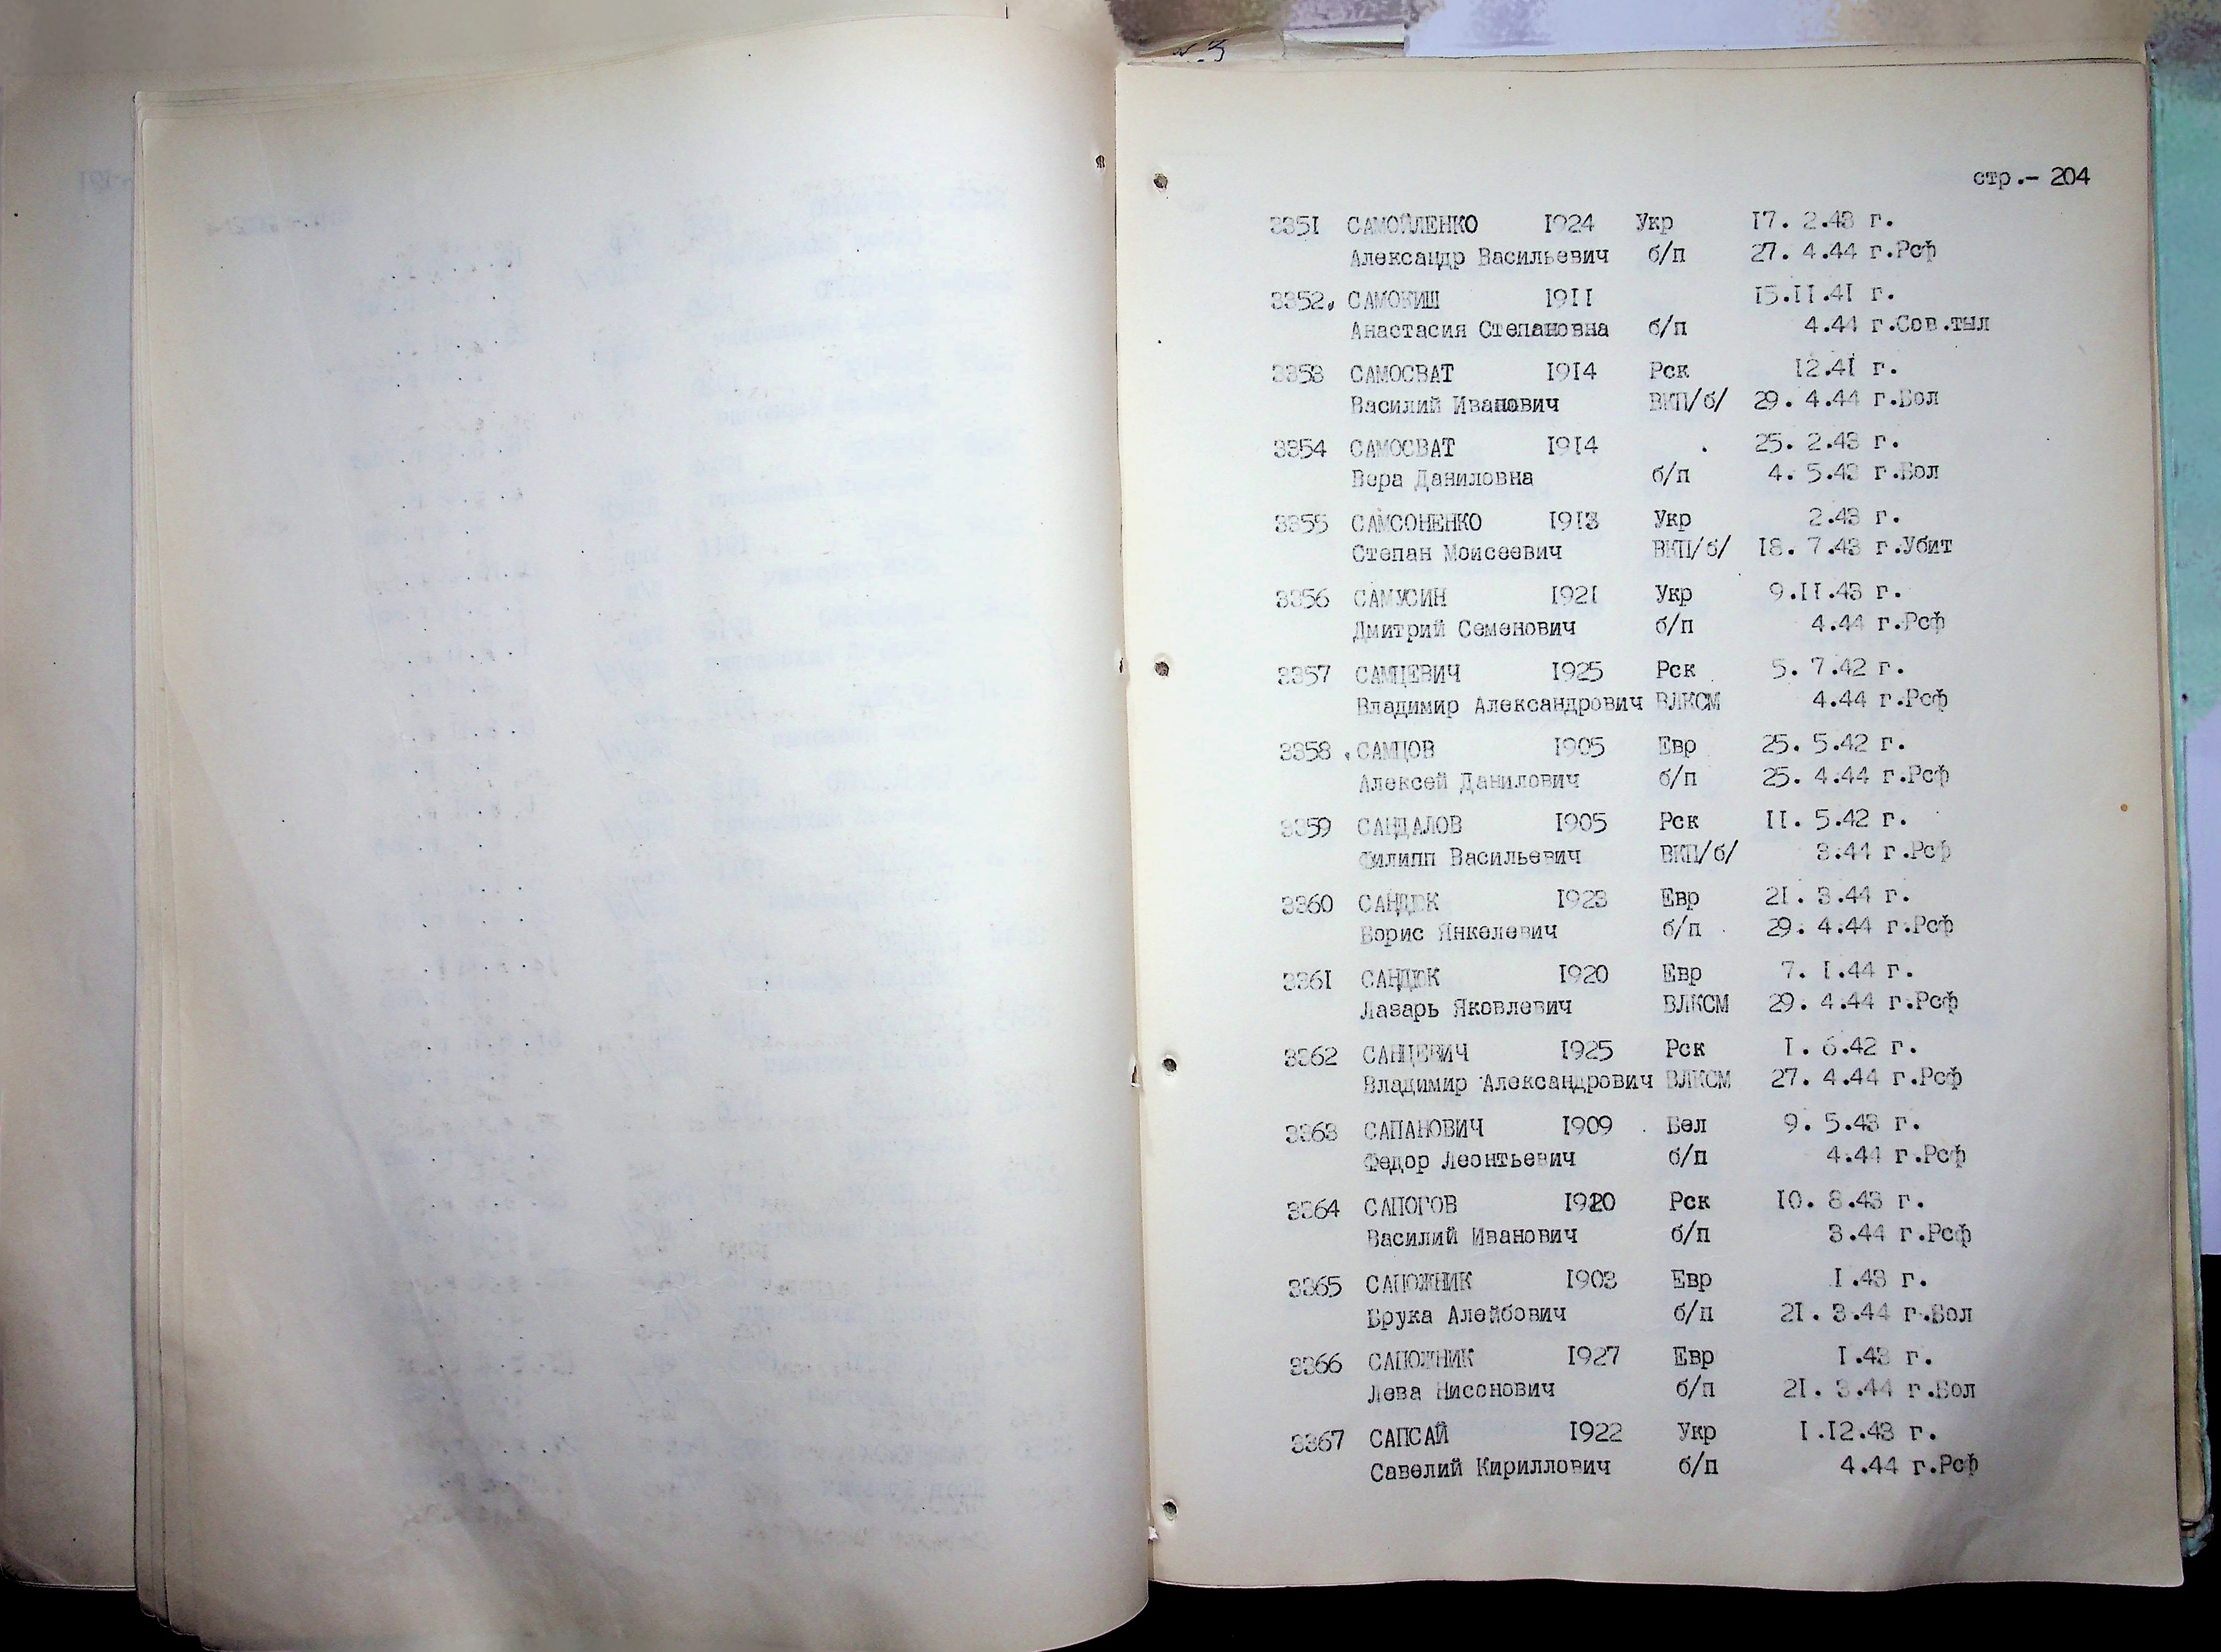 стр.- 204
3351 САМОЙЛЕНКО 1924 Укр 17. 2.43 г.
Александр Васильевич б/п 27. 4.44 г.Рсф
3352. САМОКИШ 1911 15.11.41 г.
Анастасия Степановна б/п 4.44 г.Сов.тыл
3353 САМОСВАТ 1914 Рск 12.41 г.
Василий Иванович ВКП/б/ 29. 4.44 г.Бол
3354 САМОСВАТ 1914 25. 2.43 г.
Вера Даниловна б/п 4. 5.43 г.Бол
3355 САМСОНЕНКО 1913 Укр 2.43 г.
Степан Моисеевич ВКП/б/ 18. 7.43 г.Убит
3356 САМУСИН 1921 Укр 9.11.43 г.
Дмитрий Семенович б/п 4.44 г.Рсф
3357 САМЦЕВИЧ 1925 Рск 5. 7.42 г.
Владимир Александрович ВЛКСМ 4.44 г.Рсф
3358 . САМЦОВ 1905 Евр 25. 5.42 г.
Алексей Данилович б/п 25. 4.44 г.Рсф
3359 САНДАЛОВ 1905 Рск 11. 5.42 г.
Филипп Васильевич ВКП/б/ 3.44 г.Рсф
3360 САНДЮК 1923 Евр 21. 3.44 г.
Борис Янкелевич б/п 29. 4.44 г.Рсф
3361 САНДЮК 1920 Евр 7. 1.44 г.
Лазарь Яковлевич ВЛКСМ 29. 4.44 г.Рсф
3362 САНЦЕВИЧ 1925 Рск 1. 6.42 г.
Владимир Александрович ВЛКСМ 27. 4.44 г.Рсф
3363 САПАНОВИЧ 1909 Бел 9. 5.43 г.
Федор Леонтьевич б/п 4.44 г.Рсф
3364 САПОГОВ 1920 Рск 10. 8.43 г.
Василий Иванович б/п 3.44 г.Рсф
3365 САПОЖНИК 1903 Евр 1.43 г.
Брука Алейбович б/п 21. 3.44 г.Бол
3366 САПОЖНИК 1927 Евр 1.43 г.
Лева Нисонович б/п 21. 3.44 г.Бол
3367 САПСАЙ 1922 Укр 1.12.43 г.
Савелий Кириллович б/п 4.44 г.Рсф